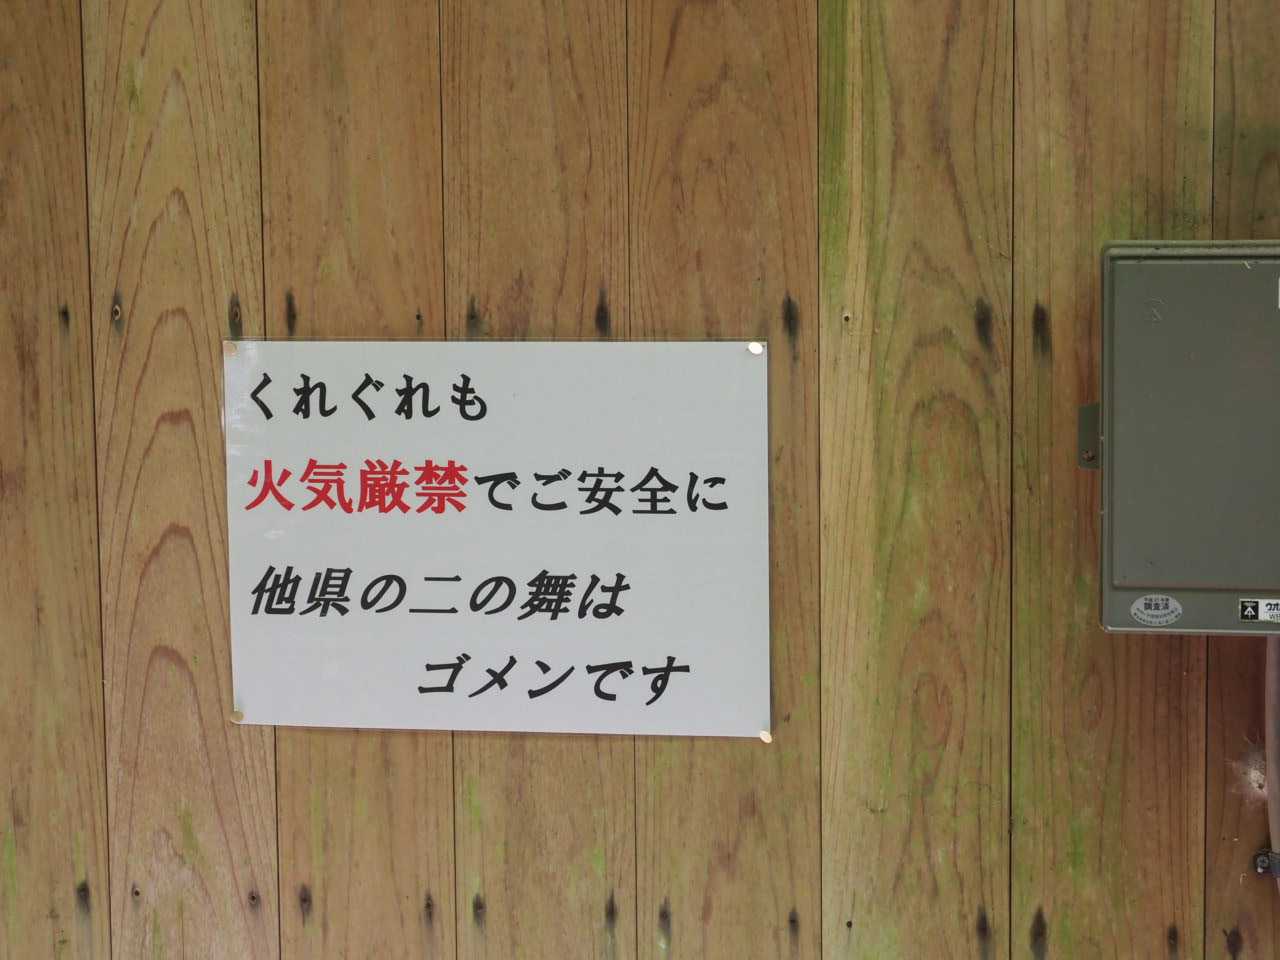 くれぐれも
火気厳禁でご安全に
他県の二の舞は
ゴメンです
調査済